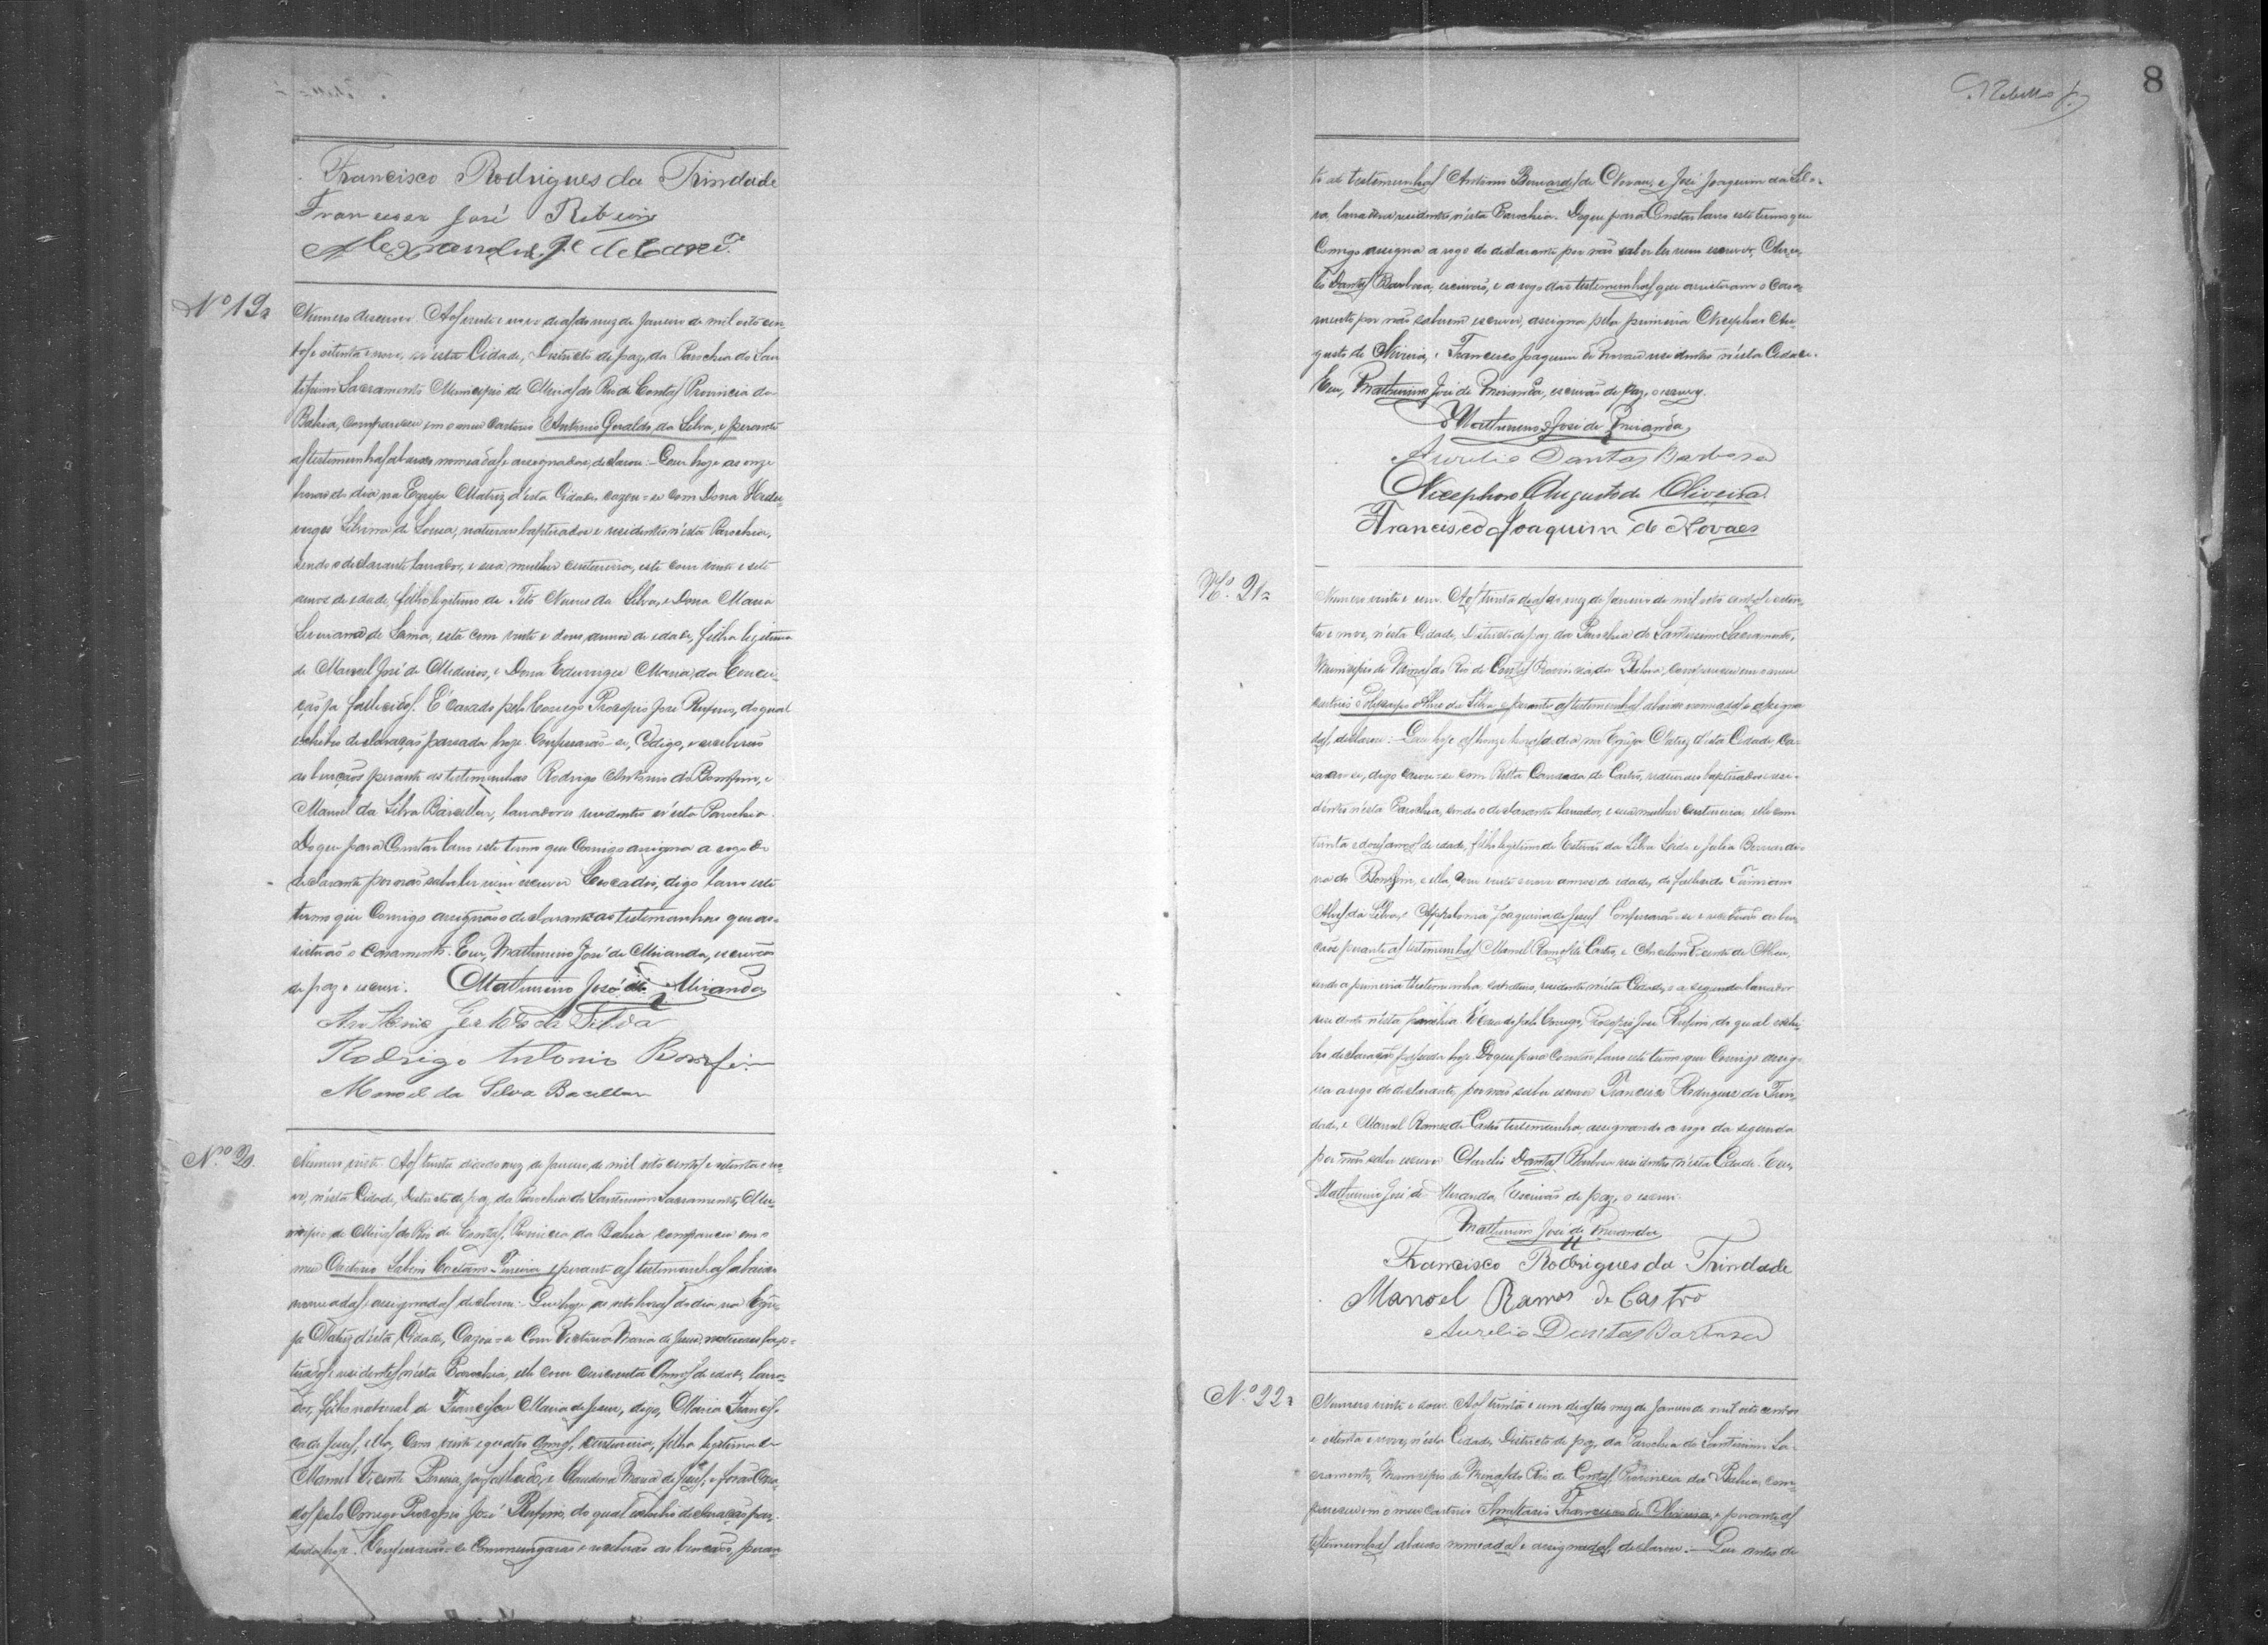 Francisco Rodrigues da Trindade
Francisco José Ribeiro
Alexandre Je de
Nº 19
Numero desenove. Aos vinte e nove dias do mez de Janeiro de mil oito cen-
tos e setenta e nove, n'esta Cidade, Districto de paz, da Parochia do San-
tissimo Sacramento Municipio de Minas do Rio de Contas Provincia da
Bahia, compareceu em o meu Cartorio Antonio Geraldo da Silva, e perante
as testemunhas abaixo nomeadas e assignadas, declarou: Que hoje as onze
horas do dia na Egreja Matriz d'esta Cidade, cazou-se com Dona
Silvina de Souza, naturaes baptizados e residentes n'esta Parochia,
sendo o declarante lavrador, e sua mulher costureira, este com vinte e sete
annos de edade, filho legitimo de Tito Nunes da Silva, e Dona Maria
Severiana de, esta com vinte e dous annos de edade, filha legitima
de Manoel José de Medeiros, e Dona Eduviges Maria da Concei-
ção ja fallecidos. E' casado pelo Conego Prozopio José Rufino, do qual
exhibio declaração passada hoje. Confessarão-se, Codigo, e receberão
as bençãos perante as testemunhas Rodrigo Antonio do Bomfim, e
Manoel da Silva Bacellar, lavradores residentes n'esta Parochia.
Do que para Constar lavro este termo que Comigo assigna a rogo do
declarante por não saber ler nem escrever Leocadio, digo lavro este
termo que Comigo assignão o declarante e as testemunhas que as-
sistirão o Casamento. Eu, Mathurino José de Miranda, escrivão
de paz o escrevi. Mathurino José de Miranda
Antonio Geraldo da Silva
Rodrigo Antonio Bomfim
Manoel da Silva Bacellar
Nro 20.
Numero vinte. Aos trinta dias do mez de Janeiro de mil oito centos e setenta e no-
ve, n'esta Cidade, Districto de paz, da Parochia do Santissimo Sacramento, Mu-
nicipio de Minas do Rio de Contas, Provincia da Bahia compareceu em o
meu Cartorio Sabino Caetano Pereira e perante as testemunhas abaixo
nomeadas e assignadas declarou: Que hoje as oito horas do dia na Egre-
ja Matriz d'esta Cidade, Cazou-se Com Victoria Maria de Jesus, naturaes bap-
tizados e residentes n'esta Parochia, elle com cincoenta Annos de edade, lavra-
dor, filho natural de Francisca Maria de Jesus, digo, Maria Francis-
ca de Jesus, ella, Com vinte e quatro Annos, Costureira, filha legitima de
Manoel Vicente Pereira, ja fallecido, e Claudina Maria de Jesus, e forão Caza-
dos pelo Conego Prozopio José Rufino, do qual exhibio declaração pas-
sada hoje. Confessarão-se Commungarão e receberão as bençãos, peran-
Rebello
8
te as testemunhas Antonio Bernardes de Novaes, e José Joaquim da Sil-
va, lavradores residentes n'esta Parochia. Do que para Constar lavro este termo que
Comigo assigna a rogo do declarante por não saber ler nem escrever, Aure-
lio Dantas Barbosa, escrivão, e a rogo das testemunhas que assistiram o Casa-
mento por não saberem escrever, assigna pela primeira Nicephoro Au-
gusto de Oliveira, e Francisco Joaquim de Novaes residentes n'esta Cidade.
Eu, Mathurino José de Miranda, escrivão de Paz, o escrevy.
Mathurino José de Miranda
Aurelio Dantas Barbosa
Nicephoro Augusto de Oliveira
Francisco Joaquim de Novaes
Nº. 21
Numero vinte e um. Aos trinta dias do mez de Janeiro de mil oito centos e seten-
ta e nove, n'esta Cidade, Districto de paz da Parochia do Santissimo Sacramento,
Municipio de Minas do Rio de Contas Provincia da Bahia, compareceu em o meu
cartorio da Silva, e perante as testemunhas abaixo nomeadas e assigna-
das, declarou: Que hoje as honze horas do dia na Egreja Matriz d'esta Cidade, ca-
sarão-se, digo Casou-se com Ritta de Castro, naturaes baptizados e resi-
dentes n'esta Parochia, sendo o declarante lavrador, e sua mulher costureira, elle com
trinta e dous annos de edade, filho legitimo de Estevão da Silva e Julia Bernardi-
na do Bomfim, e ella, com vinte e nove annos de edade, do fallecido
Alves da Silva, e Appolonia Joaquina de Jesus. Confessarão-se e receberão as ben-
çãos perante as testemunhas Manoel Ramos de Castro, e Vicente de Abreu,
sendo a primeira testemunha, residente n'esta Cidade, e a segunda lavrador
residente n'esta parochia. E casado pelo Conego, Prozopio José Rufino, do qual exhi-
bio declaração passada hoje. Do que para Constar, lavro este termo que Comigo assig-
na a rogo do declarante, por não saber escrever Francisco Rodrigues da Trin-
dade, e Manoel Ramos de Castro testemunha, assignando a rogo da segunda
por não saber escrever Aurelio Dantas Barbosa residentes n'esta Cidade. Eu,
Mathurino José de Miranda, Escrivão de paz, o escrevi.
Mathurino José de Miranda
Francisco Rodrigues da Trindade
Manoel Ramos de Castro
Aurelio Dantas Barbosa
Nº. 22
Numero vinte e dous. Aos trinta e um dias do mez de Janeiro de mil oito centos
e setenta e nove, n'esta Cidade, Districto de paz, da Parochia do Santissimo Sa-
cramento, Municipio de Minas do Rio de Contas, Provincia da Bahia, com-
pareceu em o meu cartorio Francisco de Oliveira, e perante as
testemunhas abaixo nomeadas e assignadas, declarou. Que antes de